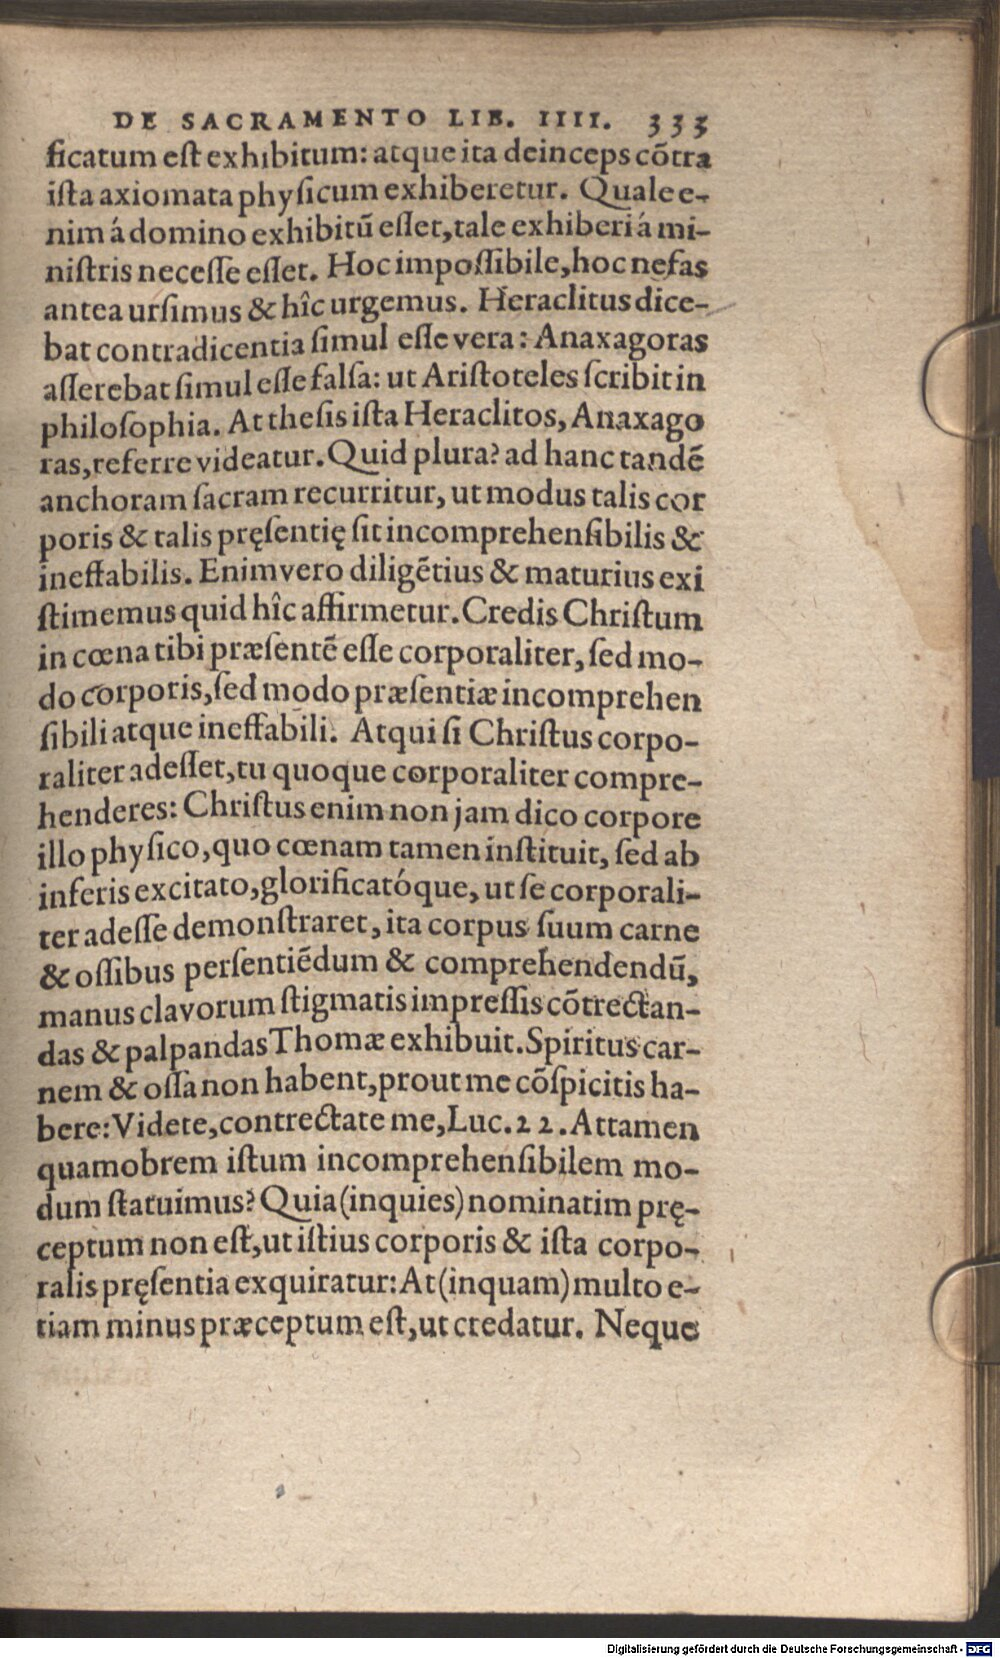 DE SACRAMENTO LIB. IIII. 333
ficatum eſt exhibitum: atque ita deinceps cõtra
iſta axiomata phyſicum exhiberetur. Quale e-
nim á domino exhibitũ eſſet, tale exhiberi á mi-
niſtris neceſſe eſſet. Hoc impoſſibile, hoc nefas
antea urſimus & hîc urgemus. Heraclitus dice-
bat contradicentia ſimul eſſe vera: Anaxagoras
aſſerebat ſimul eſſe falſa: ut Ariſtoteles ſcribit in
philoſophia. At theſis iſta Heraclitos, Anaxago
ras, referre videatur. Quid plura? ad hanc tandẽ
anchoram ſacram recurritur, ut modus talis cor
poris & talis pręſentię ſit incomprehenſibilis &
ineffabilis. Enimvero diligẽtius & maturius exi
ſtimemus quid hîc affirmetur. Credis Chriſtum
in cœna tibi præſentẽ eſſe corporaliter, ſed mo-
do corporis, ſed modo præſentiæ incomprehen
ſibili atque ineffabili. Atqui ſi Chriſtus corpo-
raliter adeſſet, tu quoque corporaliter compre-
henderes: Chriſtus enim non jam dico corpore
illo phyſico, quo cœnam tamen inſtituit, ſed ab
inferis excitato, glorificatóque, ut ſe corporali-
ter adeſſe demonſtraret, ita corpus ſuum carne
& oſſibus perſentiẽdum & comprehendendũ,
manus clavorum ſtigmatis impreſſis cõtrectan-
das & palpandas Thomæ exhibuit. Spiritus car-
nem & oſſa non habent, prout me cõſpicitis ha-
bere: Videte, contrectate me, Luc. 22. Attamen
quamobrem iſtum incomprehenſibilem mo-
dum ſtatuimus? Quia (inquies) nominatim prę-
ceptum non eſt, ut iſtius corporis & iſta corpo-
ralis pręſentia exquiratur: At (inquam) multo e-
tiam minus præceptum eſt, ut credatur. Neque
Digitalisierung gefördert durch die Deutsche Forschungsgemeinschaft - DFG